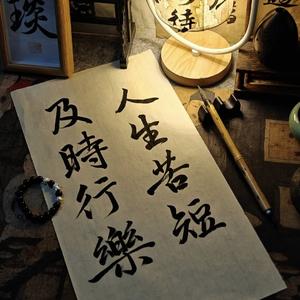 人生苦短
及時行樂
琰